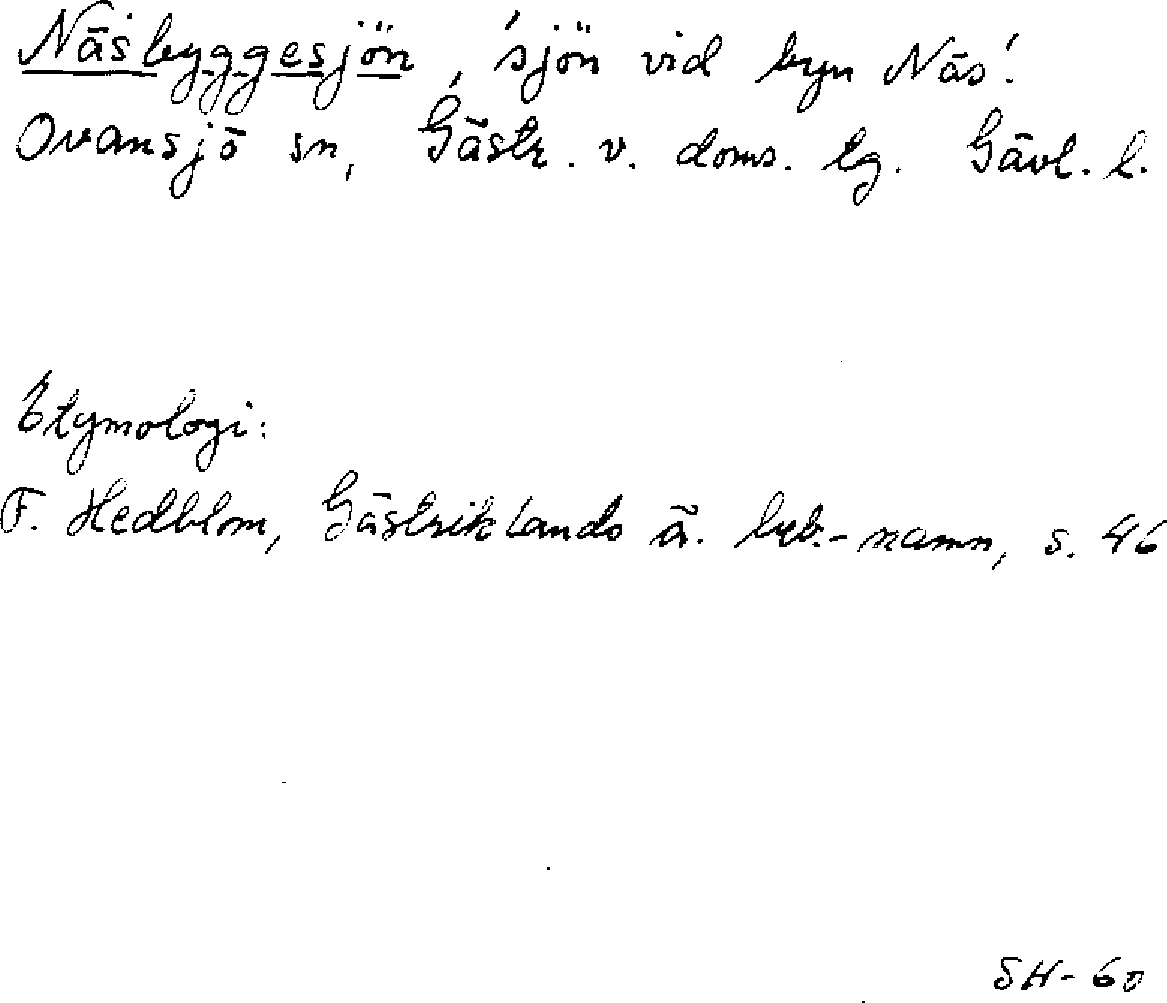 Näsbyggesjön, 'sjön vid byn Näs'.
Ovansjö sn, Gästr. v. doms. tg. Gävl. l.
Etymologi:
F. Hedblom, Gästriklands ä. beb.-namn, s. 46
SH-60